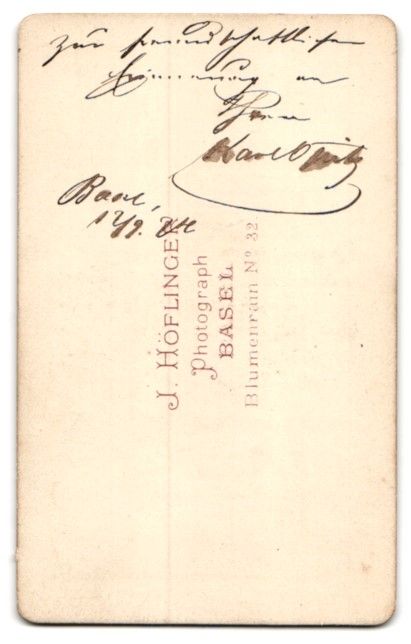 zur freundschaftlichen
Erinnerung an
Ihren
Karl
Basel,
12/9.
J. HÖFLINGER
Photograph
BASEL
Blumenrain No 32